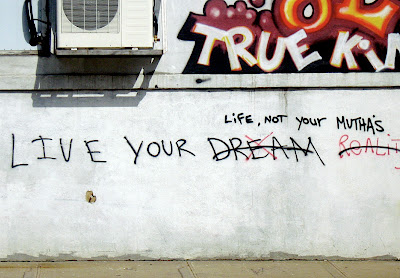 TRUE KiN
LiFE, NOT YOUR MUTHA'S
LIVE YOUR DREAM REALIT